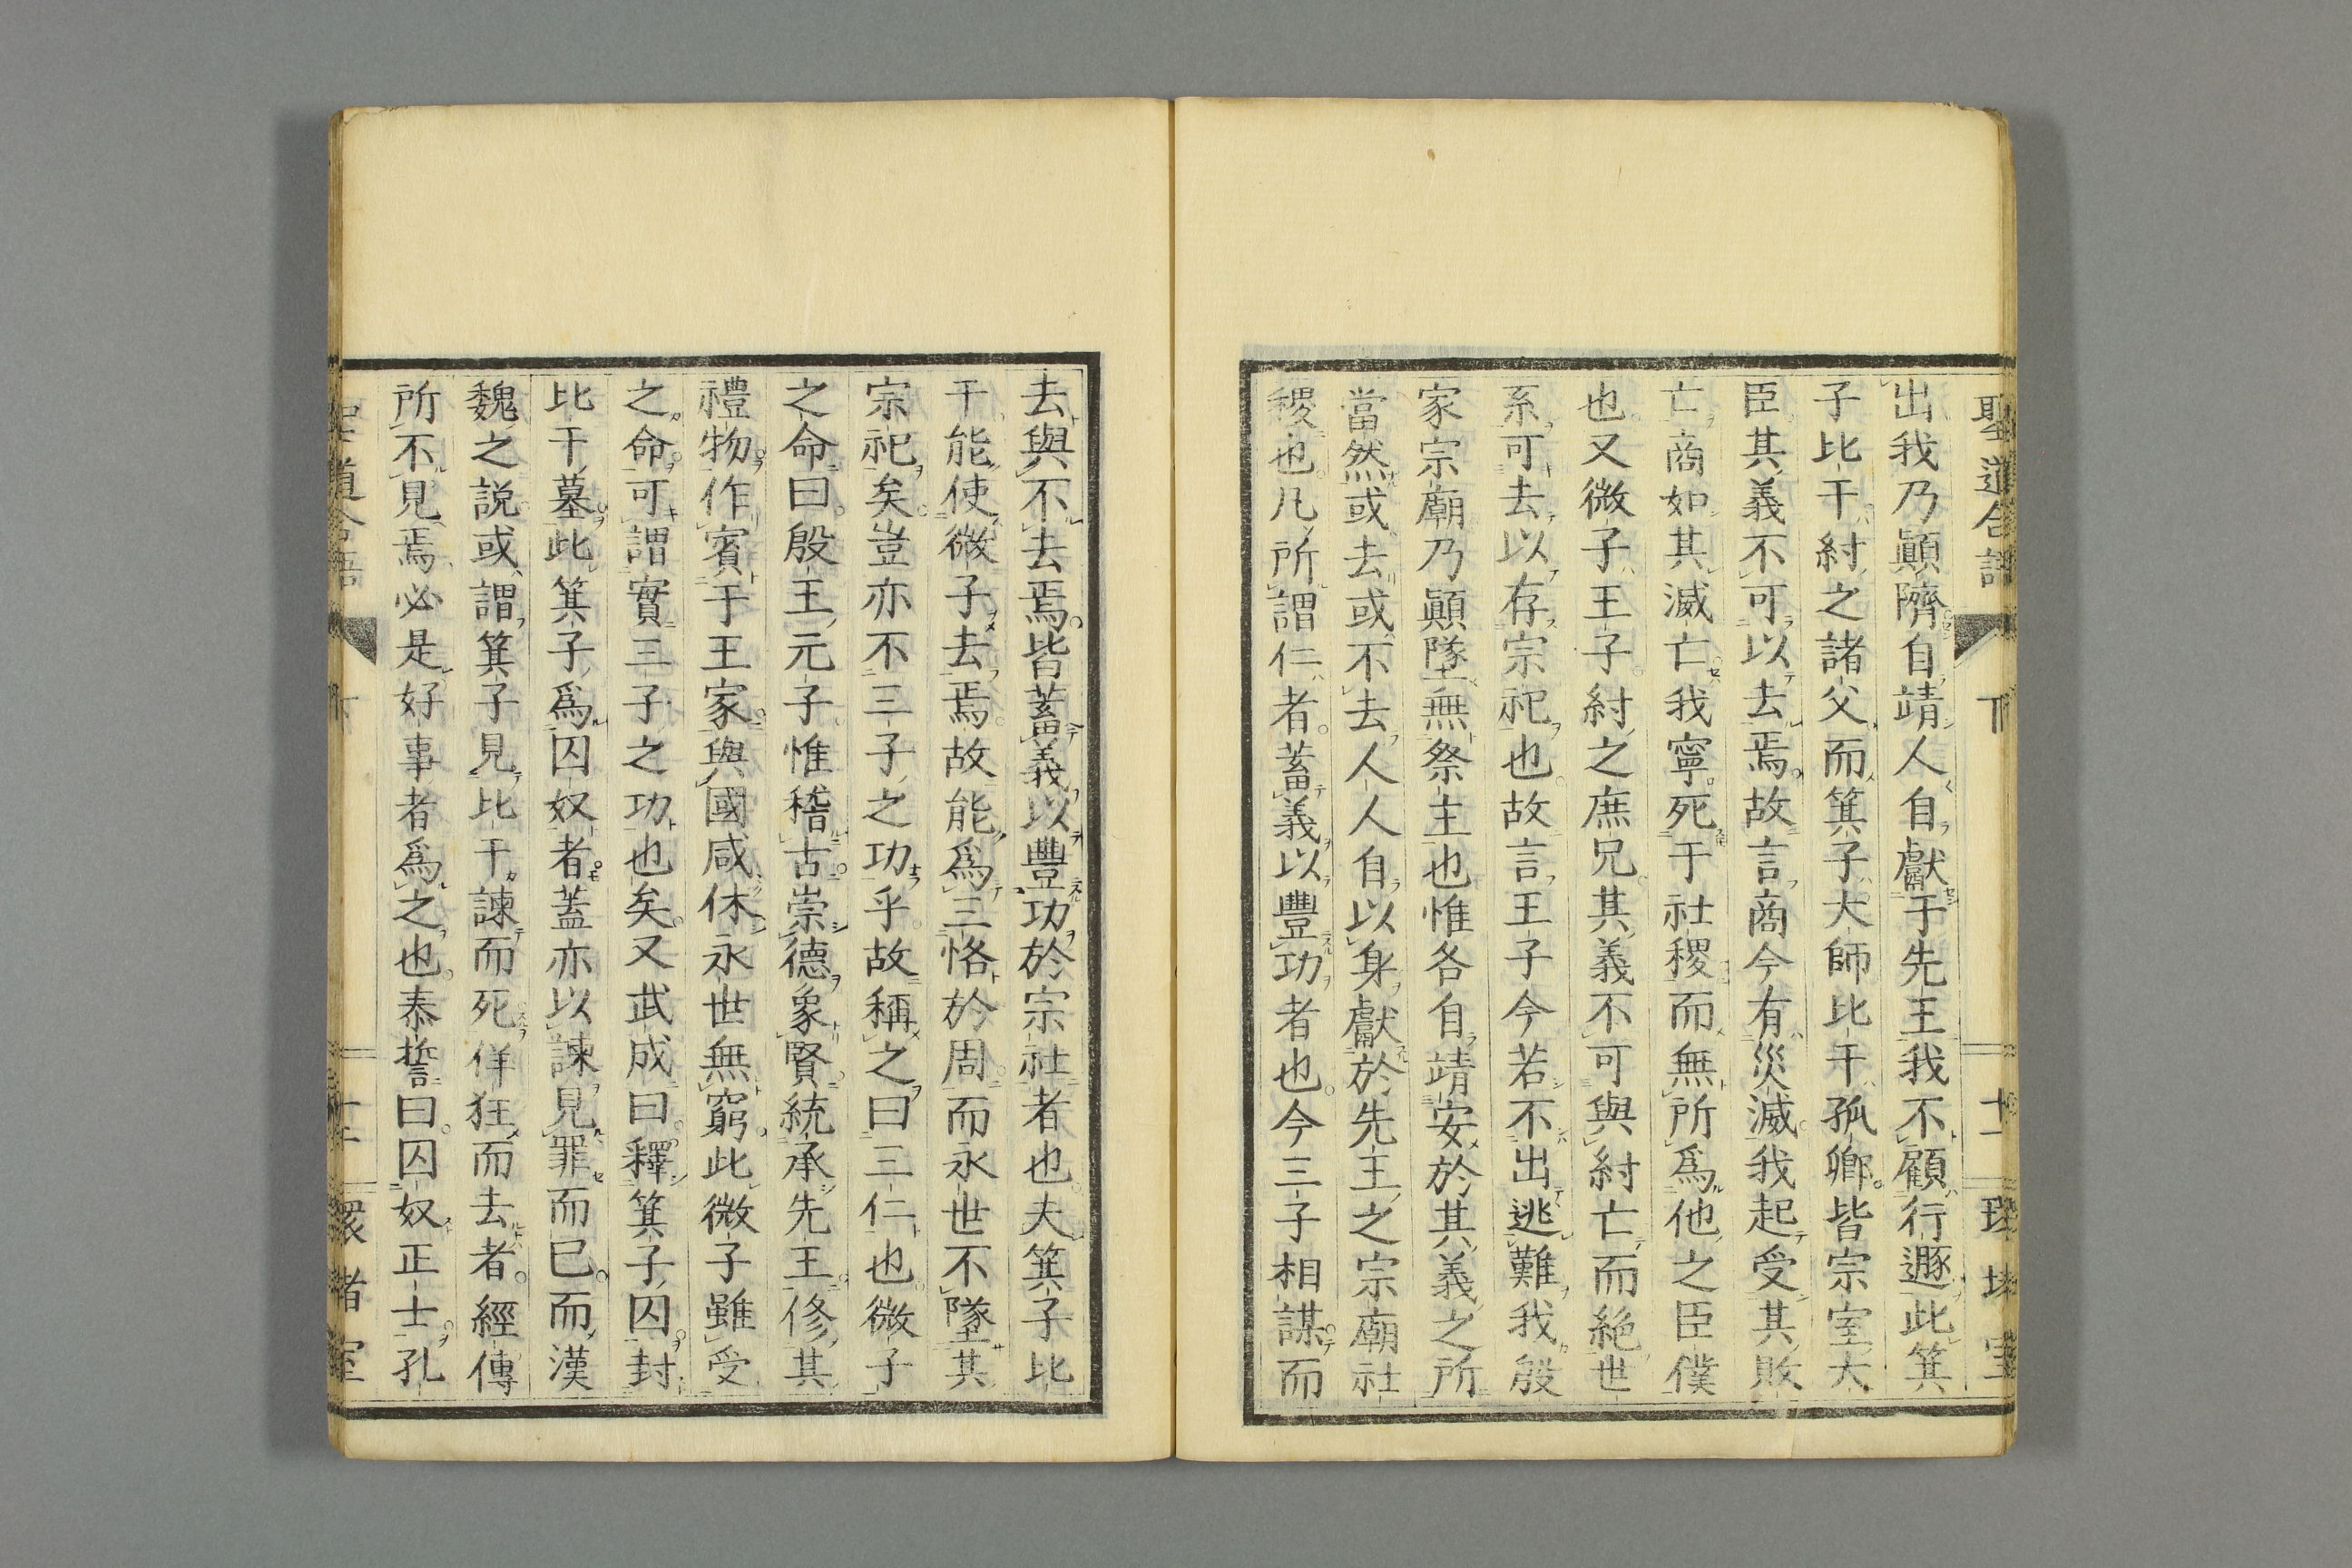 出我乃顚隮自靖人自獻于先王我不顧行遯此箕
子比干紂之諸父而箕子大師比干孤卿皆宗室大
臣其義不可以去焉故言商今有災滅我起受其敗
亡商如其滅亡我寧死于社稷而無所爲他之臣僕
也又微子王子紂之庶兄其義不可與紂亡而絕世
系可去以存宗祀也故言王子今若不出逃難我殷
家宗廟乃顚墜無祭主也惟各自靖安於其義之所
當然或去或不去人人自以身獻於先王之宗廟社
稷也凡所謂仁者蓄義以豐功者也今三子相謀而
去與不去焉皆蓄義以豐功於宗社者也夫箕子比
干能使微子去焉故能爲三恪於周而永世不墜其
宗祀矣豈亦不三子之功乎故稱之曰三仁也微子
之命曰殷王元子惟稽古崇德象賢統承先王修其
禮物作賓于王家與國咸休永世無窮此微子雖受
之命可謂實三子之功也矣又武成曰釋箕子囚封
比干墓此箕子爲囚奴者蓋亦以諫見罪而已而漢
魏之説或謂箕子見比干諫而死佯狂而去者經傳
所不見焉必是好事者爲之也泰誓曰囚奴正士孔